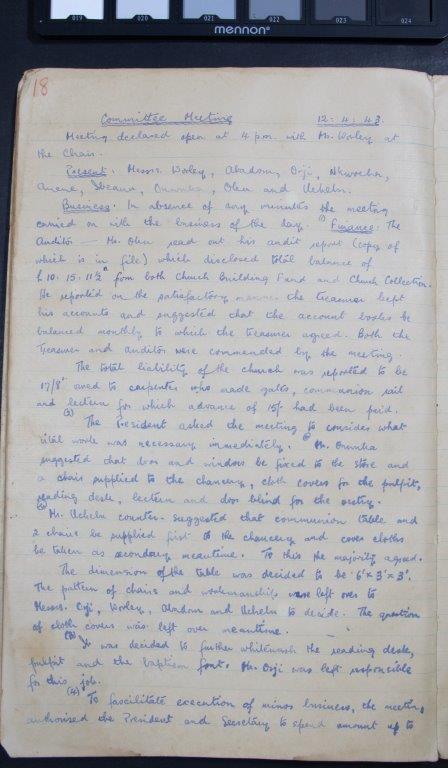 019 020 021 022 023 024
mennon
18
Committee Meeting 12:4:43
Meeting declared open at 4 p.m. with Mr. Worley at
the Chair.
Present: Messrs. Worley, Abadom, Orji,
and Uchelu.
Business: In absence of any minutes the meeting
carried on with the business of the day. (1) Finance: The
Auditor — Mr. Olu read out his audit report (copy of
which is in file) which disclosed total balance of
£10:15:11½d from both Church Building Fund and Church Collection.
He reported on the satisfactory manner the treasurer kept
his accounts and suggested that the account books be
balanced monthly to which the treasurer agreed. Both the
Treasurer and Auditor were commended by the meeting.
The total liability of the church was reported to be
17/8d owed to carpenter who made gates, communion rail
and lectern for which advance of 15/- had been paid.
(2) The President asked the meeting to consider what
vital work was necessary immediately. Mr. Onwuka
suggested that door and windows be fixed to the store and
a chair supplied to the chancery, cloth covers for the pulpit,
reading desk, lectern and door blind for the vestry.
Mr. Uchelu counter-suggested that communion table and
2 chairs be supplied first to the chancery and cover cloths
be taken as secondary meantime. To this the majority agreed.
The dimension of the table was decided to be 6' x 3' x 3'.
The pattern of chairs and workmanship were left over to
Messrs. Orji, Worley, Abadom and Uchelu to decide. The question
of cloth covers was left over meantime.
It was decided to further whitewash the reading desk,
pulpit and the baptism font. Mr. Orji was left responsible
for this job.
(4) To fascilitate execution of minor business, the meeting
authorised the President and Secretary to spend amount up to